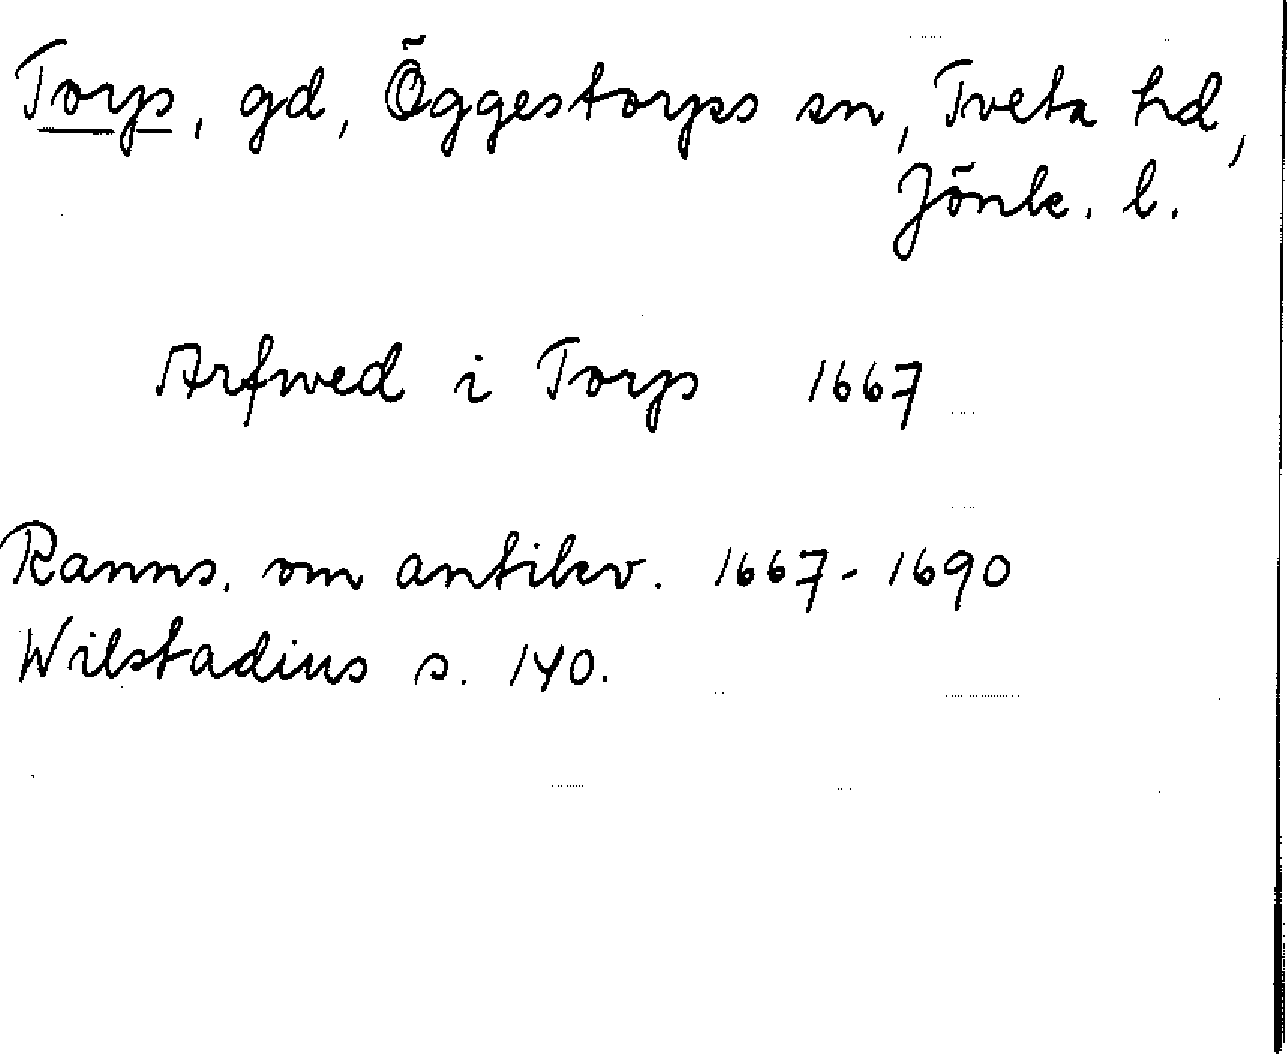 Torp, gd, Öggestorps sn, Tveta hd,
Jönk. l.
Arfwed i Torp 1667
Ranns. om antikv. 1667-1690
Wilstadius s. 140.